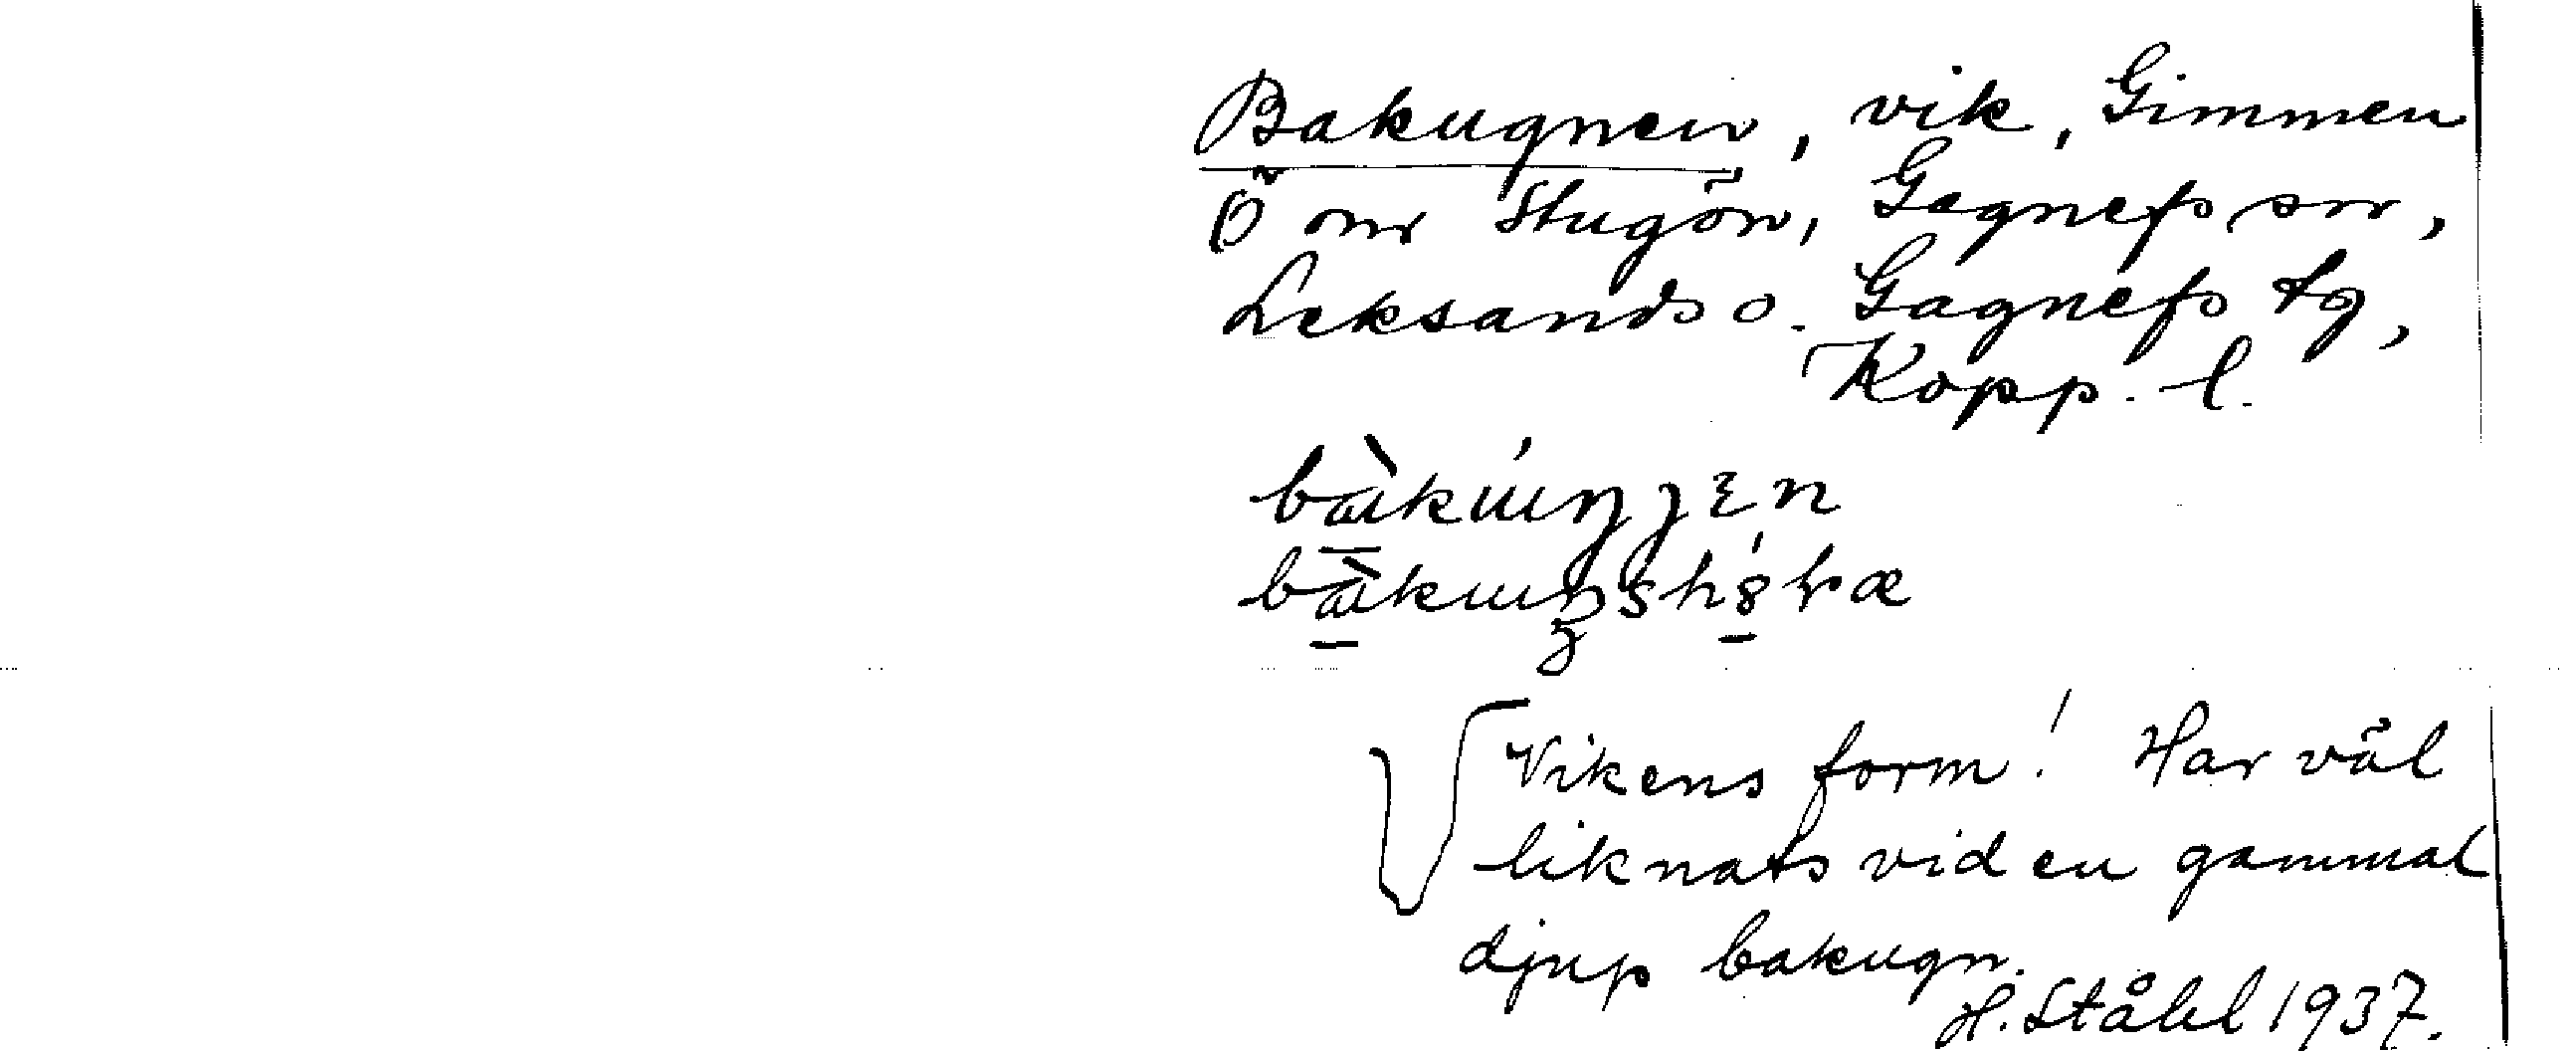 Bakugnen, vik, Gimmen
Ö om Stugön, Gagnefs sn,
Leksands o. Gagnefs tg,
Kopp. l.
Vikens form! Har väl
liknats vid en gammal
djup bakugn.
H. Ståhl 1937.